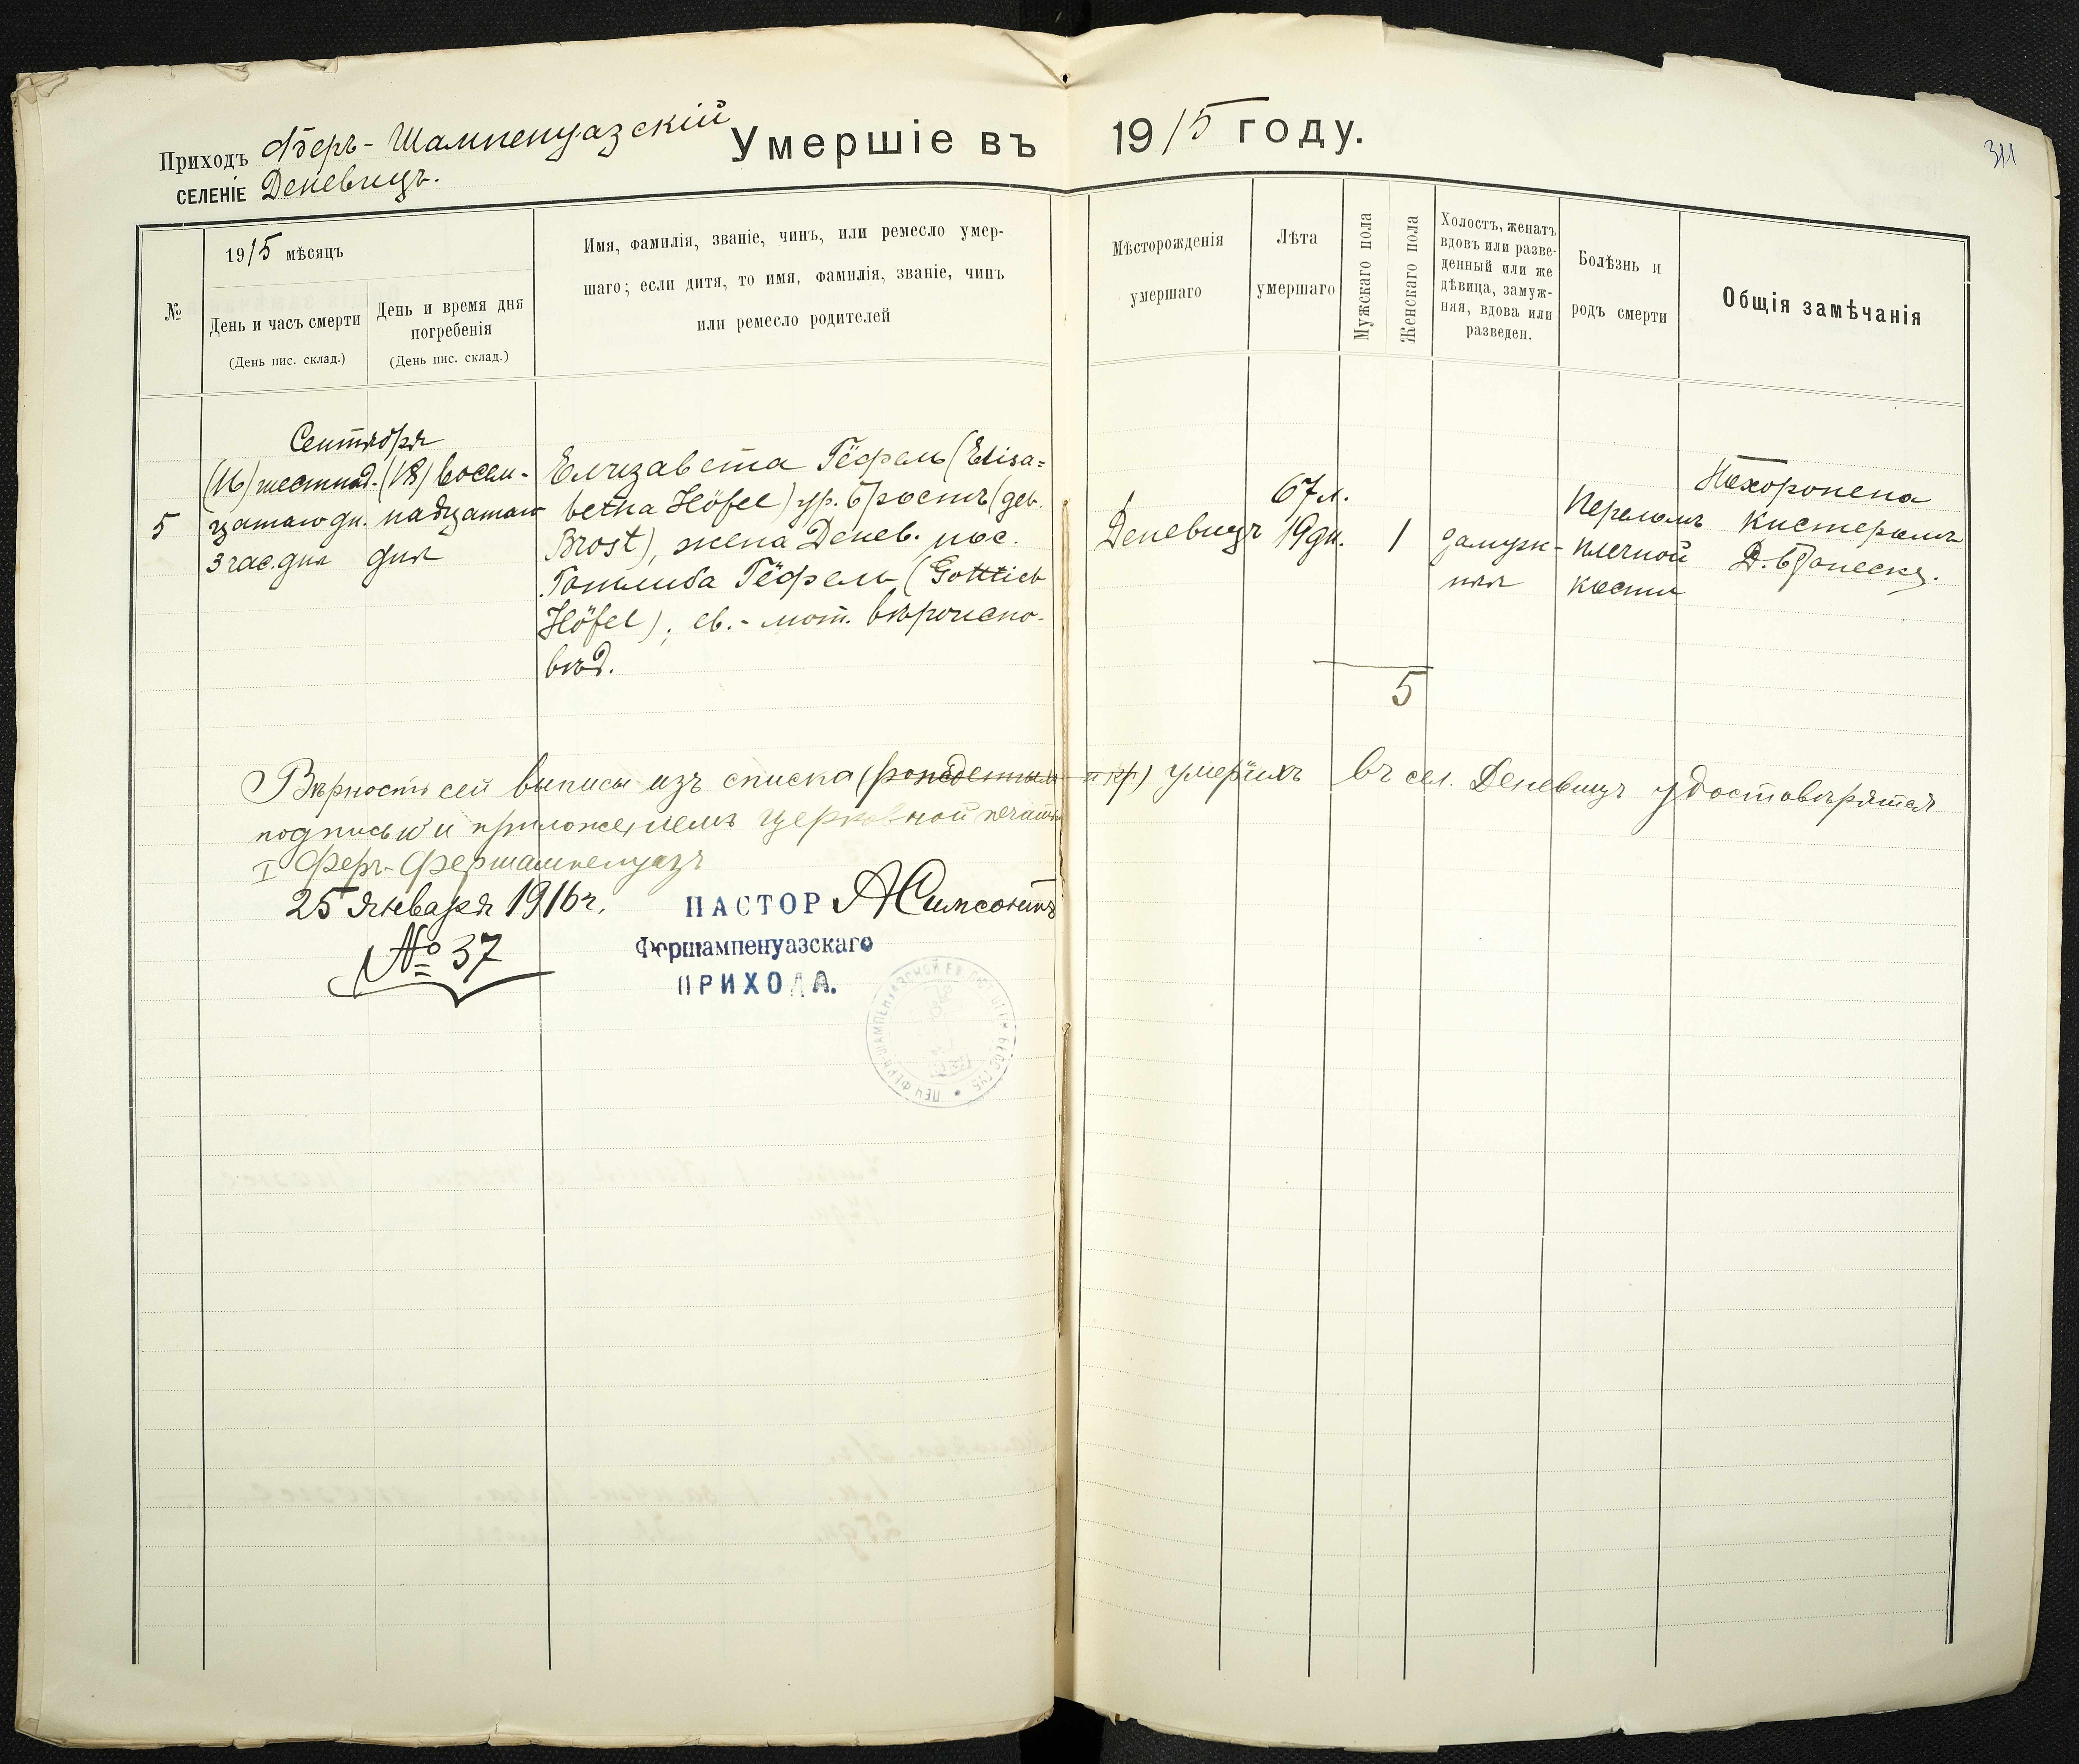 Приходъ Феръ-Шампенуазскій
селеніе Деневицъ.
Умершіе въ 1915 году.
311
№
1915 мѣсяцъ
День и часъ смерти
(День пис. склад.)
День и время дня
погребенія
(День пис. склад.)
Имя, фамилія, званіе, чинъ, или ремесло умер-
шаго; если дитя, то имя, фамилія, званіе, чинъ
или ремесло родителей
Мѣсторожденія
умершаго
Лѣта
умершаго
Мужскаго пола
Женскаго пола
Холостъ, женатъ
вдовъ или разве-
денный или же
дѣвица, замуж-
няя, вдова или
разведен.
Болѣзнь и
родъ смерти
Общія замѣчанія
5
Сентября
(16) шестнад-
цатаго дн.
3 час. дня
(18) восем-
надцатаго
дня
Елизавета Гёфель (Elisa=
betha Höfel) ур. Бростъ (geb.
Brost), жена Денев. пос.
Готлиба Гёфель (Gottlieb
Höfel), ев.-лют. вѣроиспо-
вѣд.
Деневицъ
67 л.
19 дн.
1
замуж-
няя
Переломъ
плечной
кости
Похоронена
кистеромъ
5
Вѣрность сей выписи изъ списка (рожденныхъ и кр) умершихъ въ сел. Деневицъ удостовѣряется
подписью и приложеніемъ церковной печати
I Феръ-Фершампенуазъ
25 Января 1916 г.
№ 37
ПАСТОР А Симсонъ
Фершампенуазскаго
ПРИХОДА.